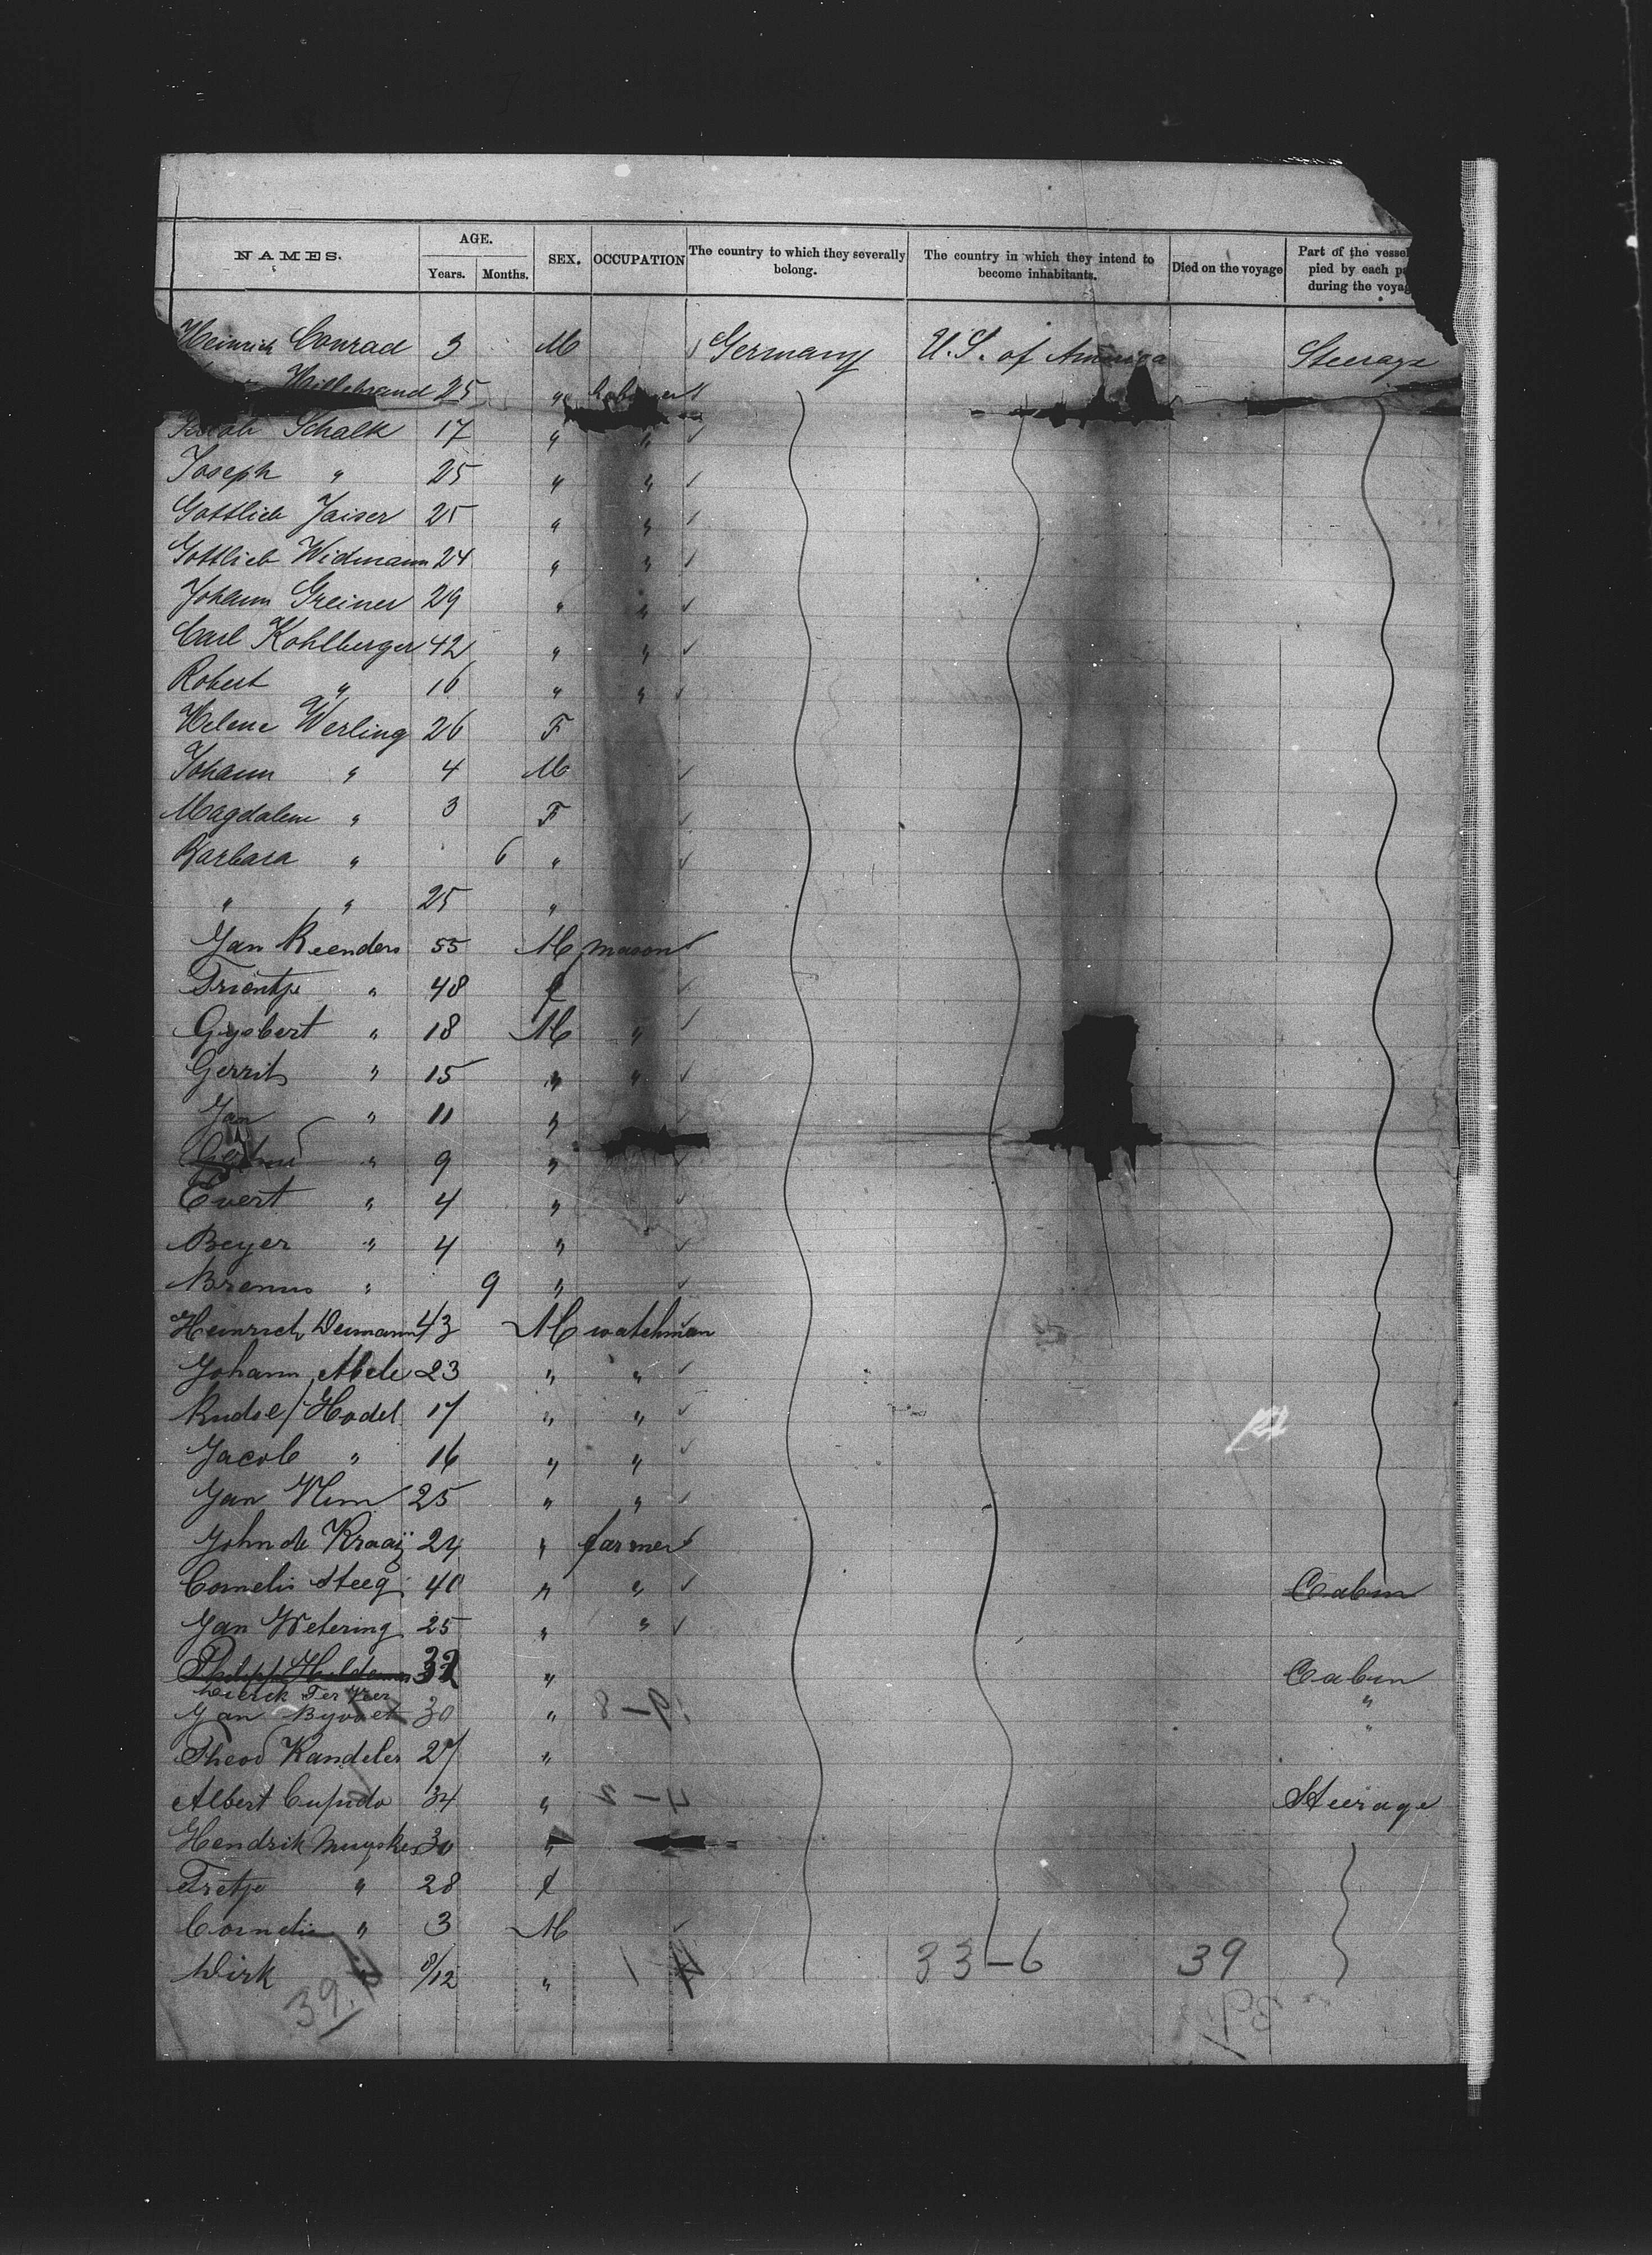 NAMES. AGE. Years. Months. SEX. OCCUPATION The country to which they severally belong. The country in which they intend to become inhabitants. Died on the voyage Part of the vessel pied by each pa during the voyag
Heinrich Conrad 3 M Germany U.S. of America Steerage
Hillebrand 25 " Labourer
Schalk 17 " "
Joseph " 25 " "
Gottlieb Jaiser 25 " "
Gottlieb Widmann 24 " "
Johann Greiner 29 " "
Carl Kohlberger 42 " "
Robert " 16 " "
Helene Werling 26 F
Johann " 4 M
Magdalene " 3 F
Barbara " 6 "
" " 25 "
Jan Reenders 55 M mason
Trientje " 48 f
Gysbert " 18 M "
Gerrit " 15 " "
Jan " 11 "
" 9 "
Evert " 4 "
Beyer " 4 "
" 9 "
Heinrich Deimann 43 M watchman
Johann Abele 23 " "
Rudolf Hodel 17 " "
Jacob " 16 " "
Jan 25 " "
John de Kraaij 24 " farmer
Cornelis Steeg 40 " " Cabin
Jan Wetering 25 " "
Philipp 32 " Cabin
Dierik Ter Veer "
Jan Byvoet 30 " "
Theod Kandeler 27 "
Albert Cupido 34 " Steerage
Hendrik Muyskes 30 "
Tretje " 28 f
Cornelis " 3 M
Dirk " 8/12 " 33-6 39
39